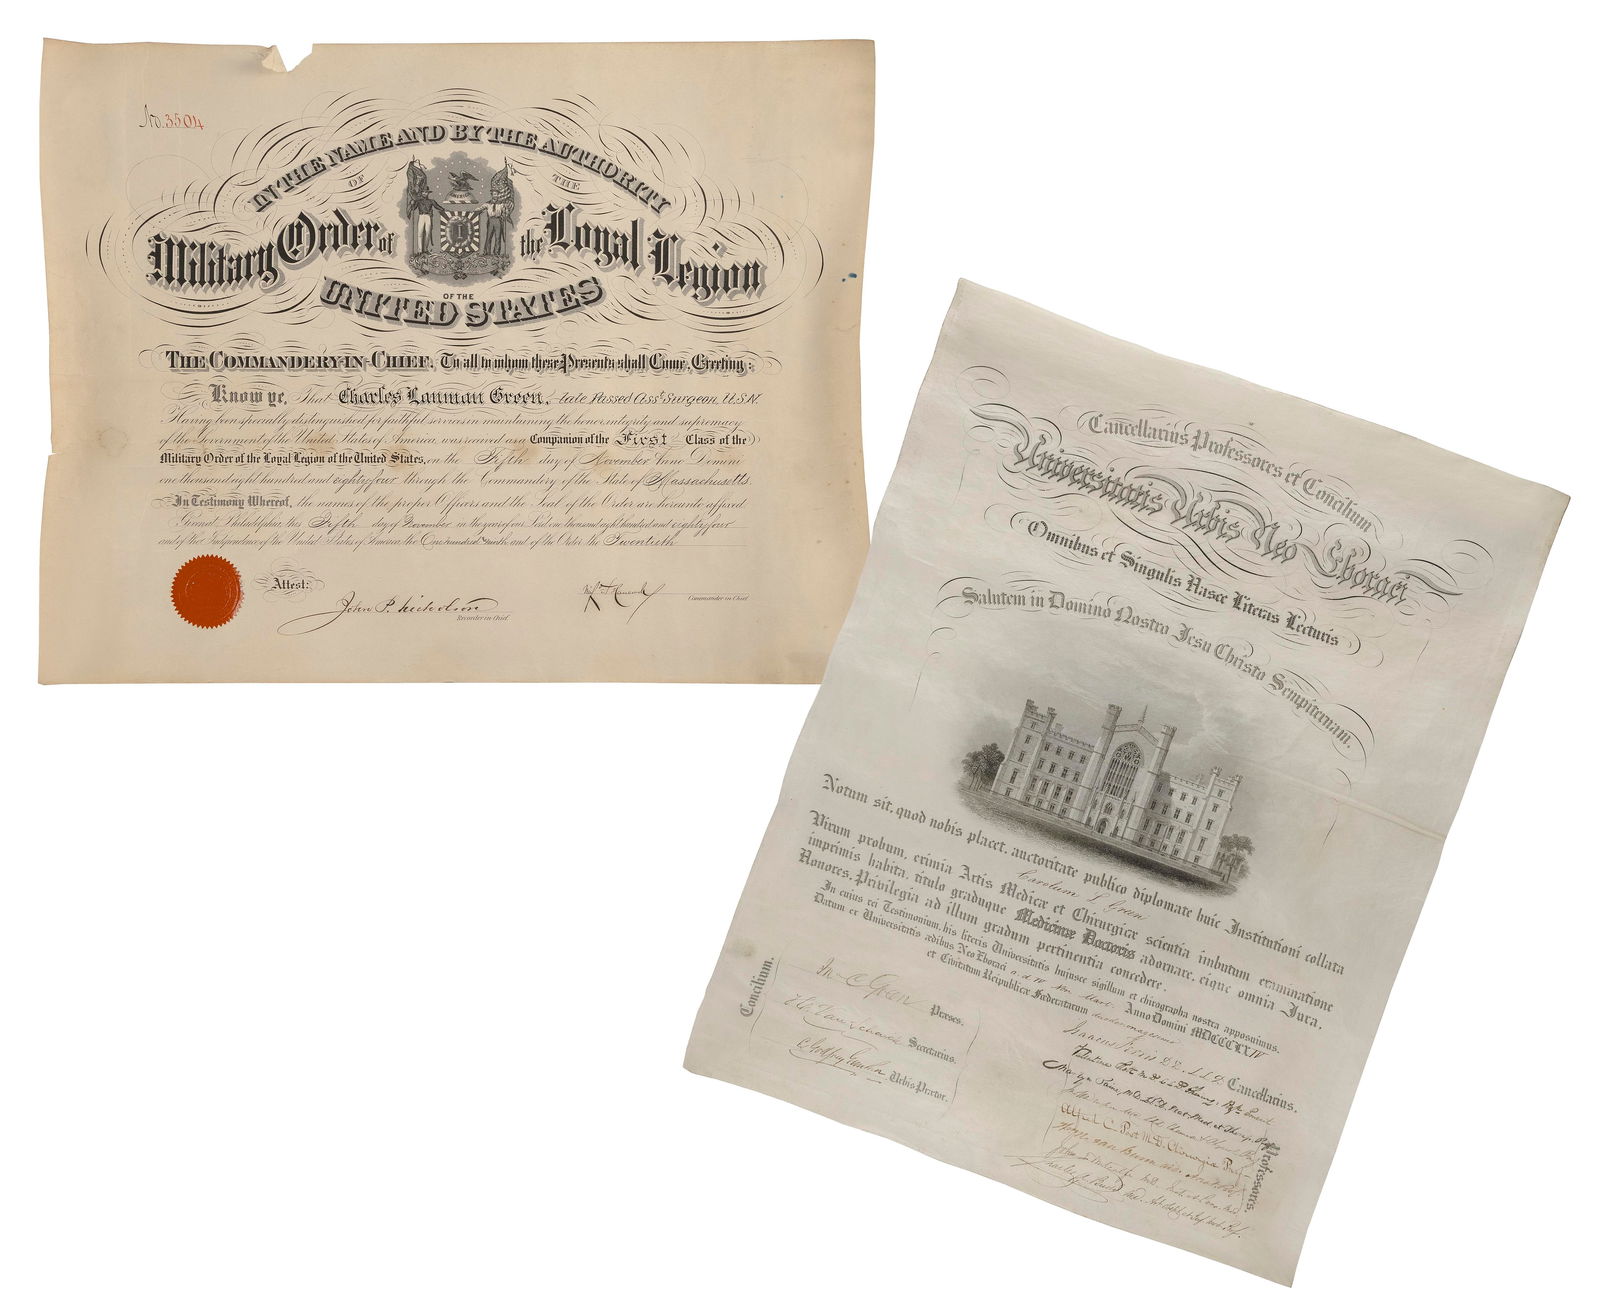 No. 3504
IN THE NAME AND BY THE AUTHORITY
OF THE
Military Order of the Loyal Legion
OF THE
UNITED STATES
THE COMMANDERY-IN-CHIEF, To all to whom these Presents shall Come, Greeting:
Know ye, That Charles Lanman Green, late Passed Asst Surgeon, U.S.N.
Having been specially distinguished for faithful services in maintaining the honor, integrity and supremacy
of the Government of the United States of America, was received as a Companion of the First Class of the
Military Order of the Loyal Legion of the United States, on the Fifth day of November Anno Domini
one thousand eight hundred and eighty four through the Commandery of the State of Massachusetts.
In Testimony Whereof, the names of the proper Officers and the Seal of the Order are hereunto affixed.
Given at Philadelphia this Fifth day of November in the year of our Lord one thousand eight hundred and eighty four
and of the Independence of the United States of America the One hundred ninth and of the Order the Twentieth
Attest:
John P. Nicholson
Recorder in Chief.
Commander in Chief.
Cancellarius Professores et Concilium
Universitatis Urbis Neo Eboraci
Omnibus et Singulis Hasce Literas Lecturis
Salutem in Domino Nostro Jesu Christo Sempiternam.
Notum sit, quod nobis placet, auctoritate publico diplomate huic Institutioni collata
Carolum L Green
Virum probum, eximia Artis Medicæ et Chirurgiæ scientia imbutum examinatione
imprimis habita, titulo graduque Medicinæ Doctoris adornare, eique omnia Jura,
Honores, Privilegia ad illum gradum pertinentia concedere.
In cujus rei Testimonium, his literis Universitatis hujusce sigillum et chirographa nostra apposuimus.
Datum ex Universitatis ædibus Neo Eboraci a. d. IV Anno Domini MDCCCLXIV
et Civitatum Reipublicæ Fœderatarum
Concilium.
M C Green Præses.
Secretarius.
Urbis Prætor.
Isaacus Ferris D.D. L.L.D. Cancellarius.
Alfred C. Post M.D. Chirurgiæ
Professores.